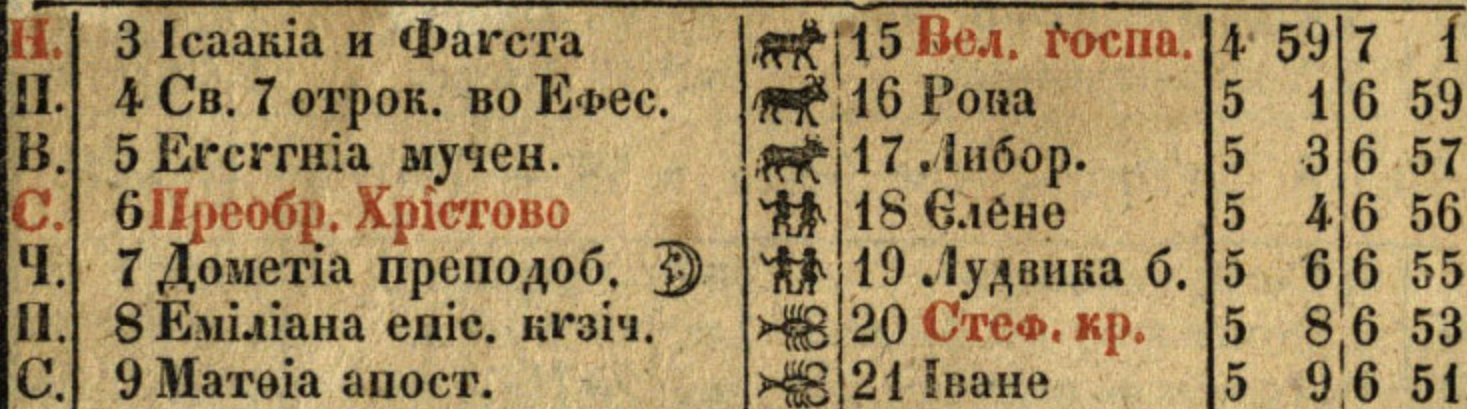 Н. 3 Ісаакіа и Фаѵста 15 Вел. госпа. 4 59 7 1
П. 4 Св. 7 отрок. во Ефес. 16 Рока 5 1 6 59
В. 5 Еѵсѵгніа мучен. 17 Либор. 5 3 6 57
С. 6 Преобр. Хрістово 18 Єлене 5 4 6 56
Ч. 7 Дометіа преподоб. 19 Лудвика б. 5 6 6 55
П. 8 Еміліана епіс. кѵзіч. 20 Стеф. кр. 5 8 6 53
С. 9 Матѳіа апост. 21 Іване 5 9 6 51